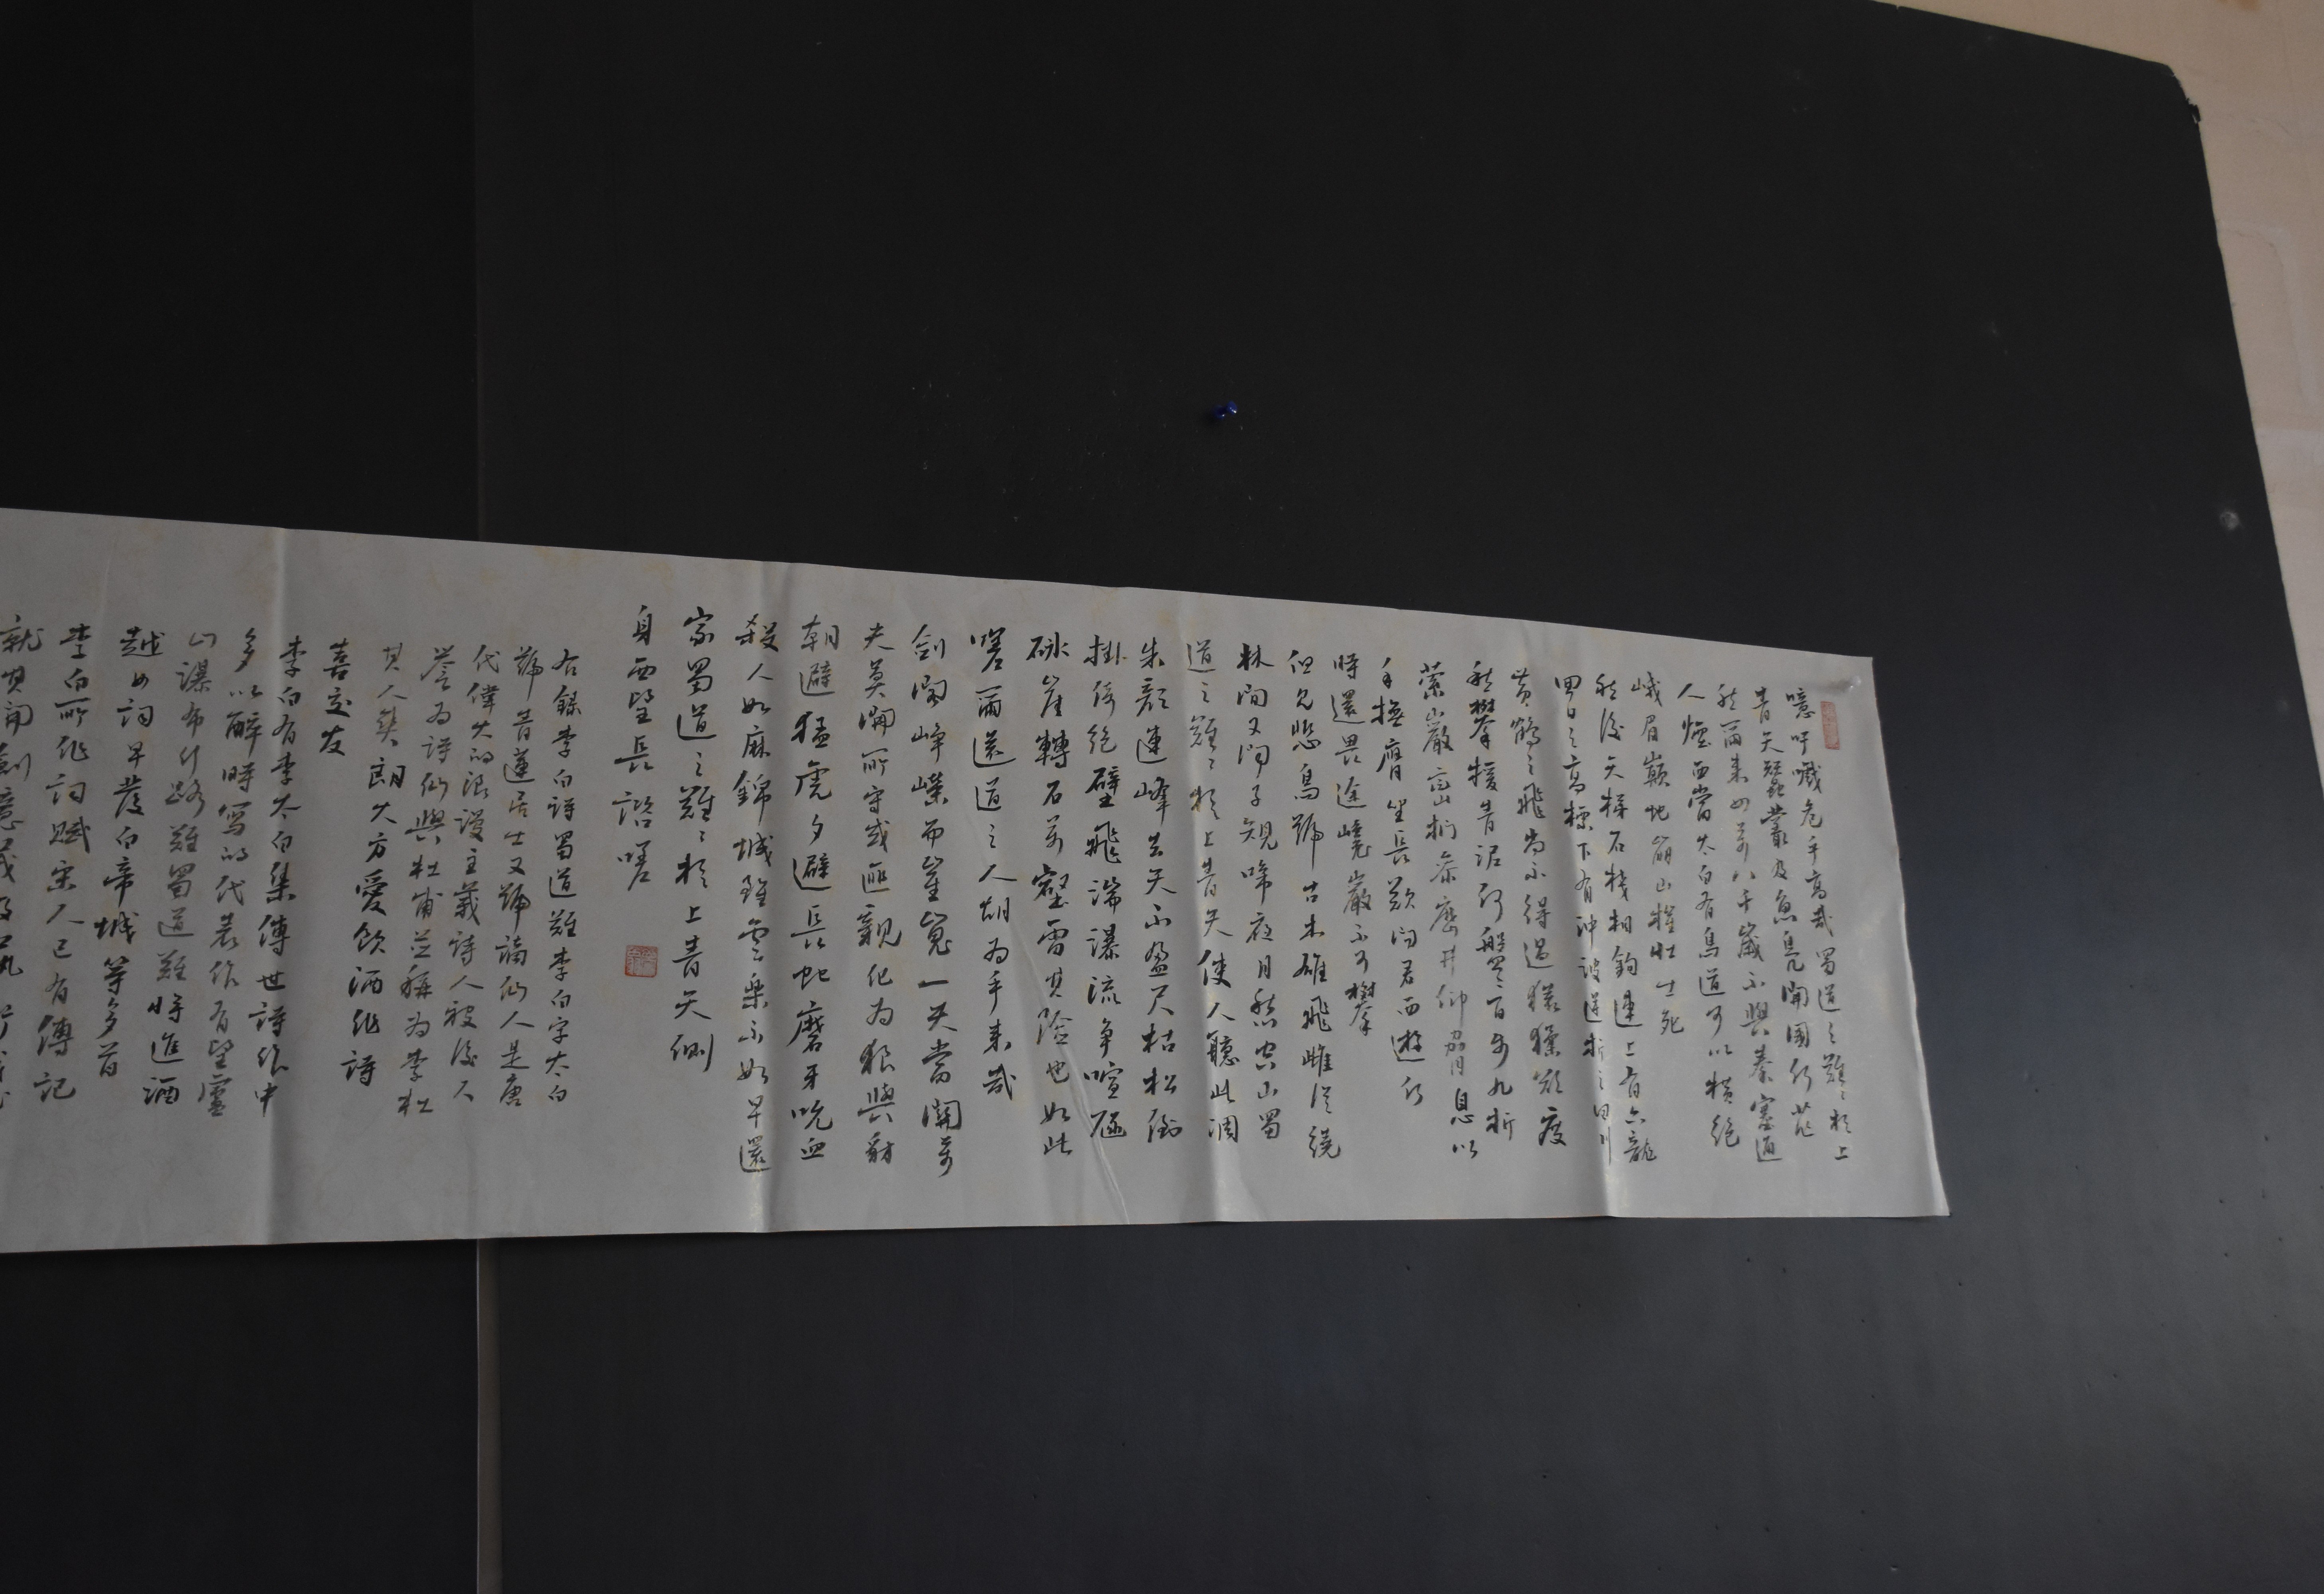 噫吁嚱危乎高哉蜀道之難難於上
青天蠶叢及魚鳧開國何茫
然爾來四萬八千歲不與秦塞通
人煙西當太白有鳥道可以橫絕
峨眉巔地崩山摧壯士死
然後天梯石棧相鉤連上有六龍
回日之高標下有沖波逆折之回川
黃鶴之飛尚不得過猿猱欲度
愁攀援青泥何盤盤百步九折
縈巖巒捫參歷井仰脅息以
手撫膺坐長歎問君西遊何
時還畏途巉巖不可攀
但見悲鳥號古木雄飛雌從繞
林間又聞子規啼夜月愁空山蜀
道之難難於上青天使人聽此凋
朱顏連峰去天不盈尺枯松倒
掛倚絕壁飛湍瀑流爭喧豗
砯崖轉石萬壑雷其險也如此
嗟爾遠道之人胡為乎來哉
劍閣崢嶸而崔嵬一夫當關萬
夫莫開所守或匪親化為狼與豺
朝避猛虎夕避長蛇磨牙吮血
殺人如麻錦城雖雲樂不如早還
家蜀道之難難於上青天側
身西望長諮嗟
右錄李白詩蜀道難李白字太白
號青蓮居士又號謫仙人是唐
代偉大的浪漫主義詩人被後人
譽為詩仙與杜甫並稱為李杜
其人爽朗大方愛飲酒作詩
喜交友
李白有李太白集傳世詩作中
多以醉時寫的代表作有望廬
山瀑布行路難蜀道難將進酒
越女詞早發白帝城等多首
李白所作詞賦宋人已有傳記
就其開創意義及